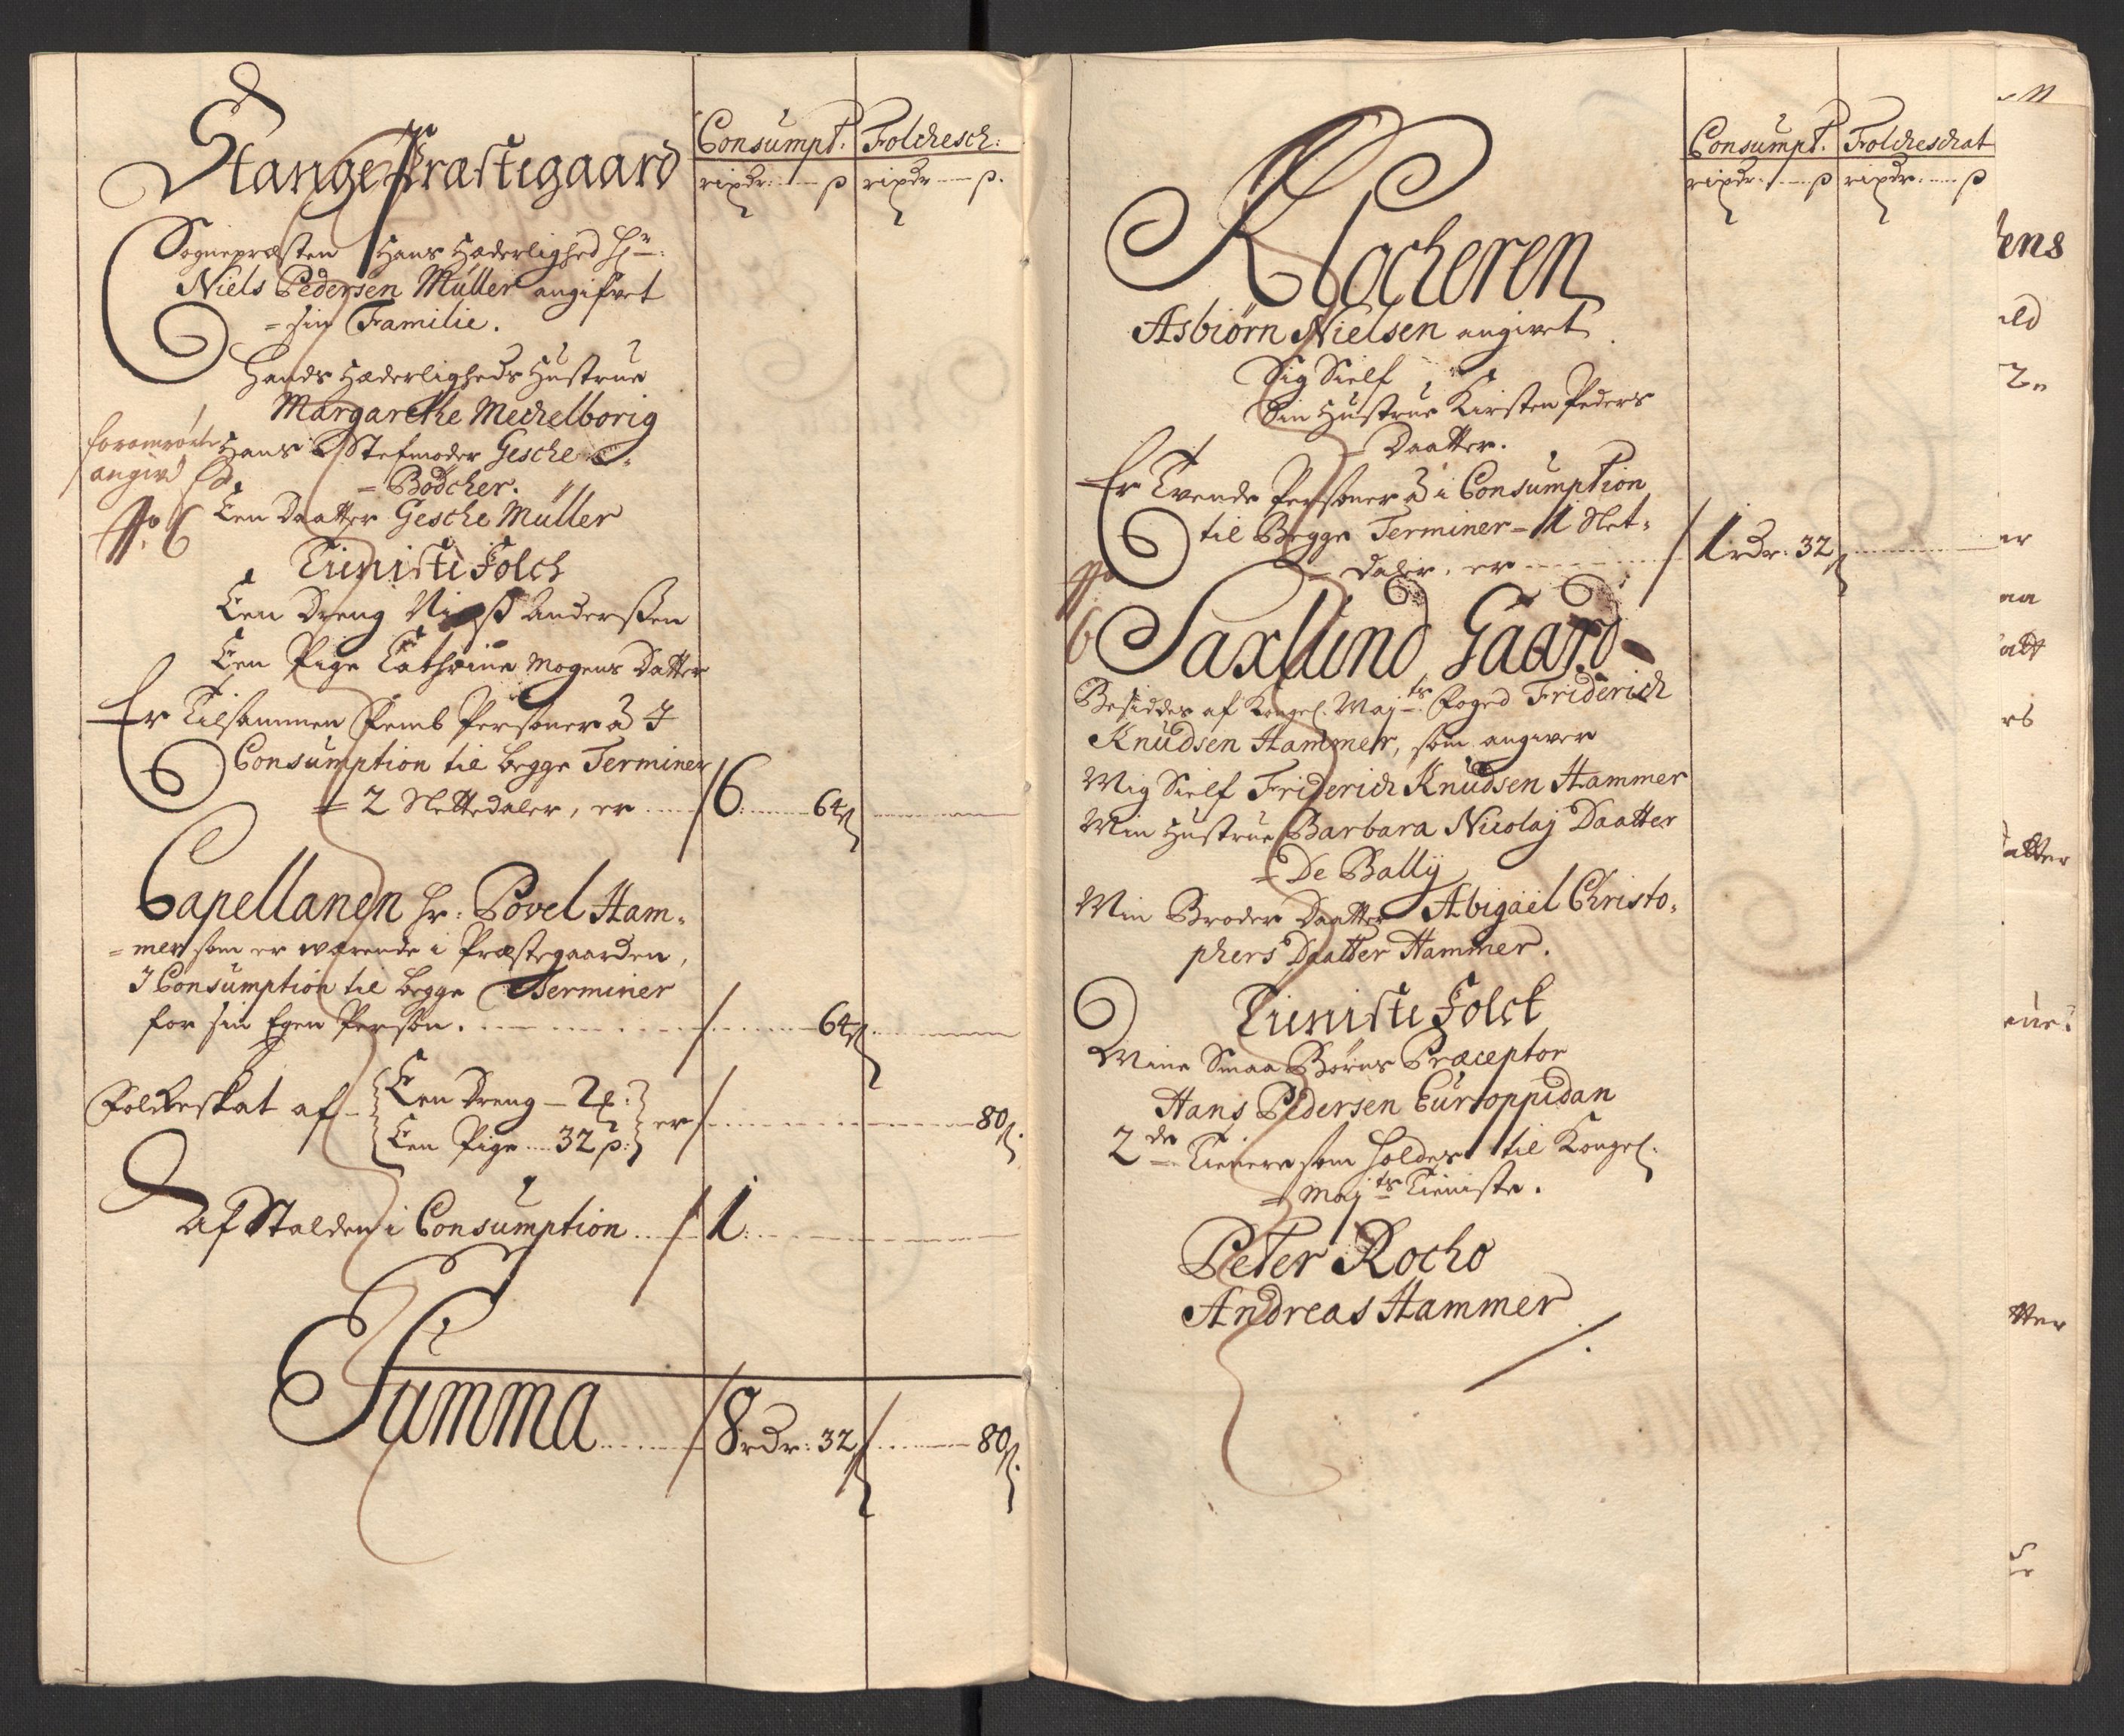 Stange Præstegaard
Consumpt. Folchesch:
rixdr. ß rixdr ß.
Sognepræsten Hans Hæderlighed Hr:
Niels Pedersen Müller angifvet
= sin Familie.
Hands Hæderligheds Hustrue
Margarethe Mechelborig
Hans Stefmoder Gesche
angivd
= Bødcher.
Een Daatter Gesche Müller
Tieniste Folch
Een Dreng Anderssen
Een Pige Cathrine Mogens Datter
Er Tilsammen Femb Personer à I
Consumption til begge Terminer
= 2 Slettedaler, er 6 64
Capellanen hr: Povel Ham=
=mer som er værende i Præstegaarden,
I Consumption til begge Terminer
for sin Egen Person. 64
Folcheskat af Een Dreng
Een Pige 32 ß: er 80
Af Stalden i Consumption 1
Summa 8 rdr: 32 80
Consumpt. Folcheschat
rixdr. ß rixdr. ß
Klocheren
Asbiørn Nielsen angivet
Sig Sielf
Sin Hustrue Kirsten Peders
Daatter.
Er Tvende Personer à i Consumption
til Begge Terminer = 1 Slet=
= daler, er 1 rdr: 32
6
Saxlund Gaard
Besiddes af Kongel. Majts. Foged Friderich
Knudsen Hammer, som angiver
Mig Sielf Friderich Knudsen Hammer
Min Hustrue Barbara Nicolaj Daatter
= De Bally
Min Broder Daatter Abigael Christo=
phers Daatter Hammer.
Tieniste Folck
Mine Smaa Børns Præceptor
Hans Pedersen Europpidan
2de Tienere som holdes til Kongel.
= Majts Tieniste.
Peter Rocho
Andreas Hammer